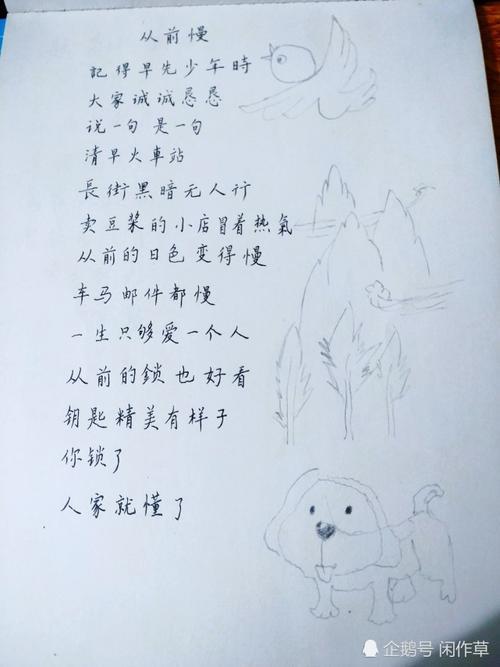 从前慢
記得早先少年時
大家诚诚恳恳
说一句 是一句
清早火車站
長街黑暗无人行
卖豆浆的小店冒着热氣
从前的日色变得慢
车马邮件都慢
一生只够爱一个人
从前的鎖也好看
钥匙精美有样子
你锁了
人家就懂了
企鹅号 闲作草